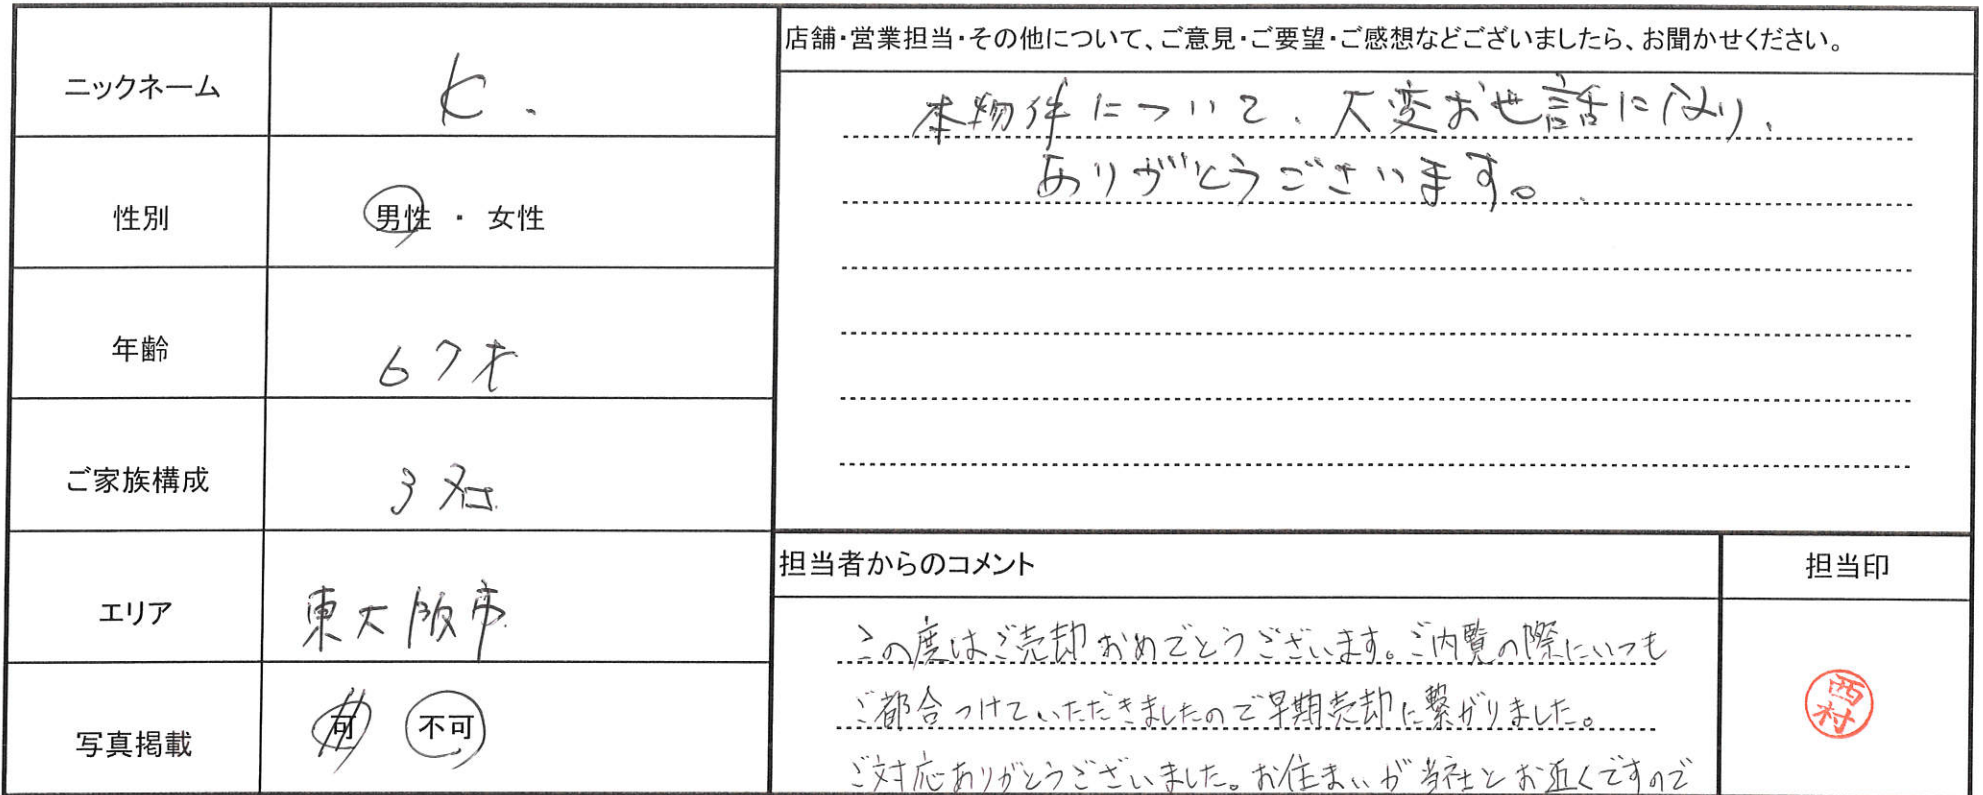 ニックネーム K.
性別 男性 ・ 女性
年齢 67才
ご家族構成 3名
エリア 東大阪市
写真掲載 可 不可
店舗・営業担当・その他について、ご意見・ご要望・ご感想などございましたら、お聞かせください。
本物件について、大変お世話になり、
ありがとうございます。
担当者からのコメント
この度はご売却おめでとうございます。ご内覧の際にいつも
ご都合つけていただきましたので早期売却に繋がりました。
ご対応ありがとうございました。お住まいが当社とお近くですので
担当印
西村